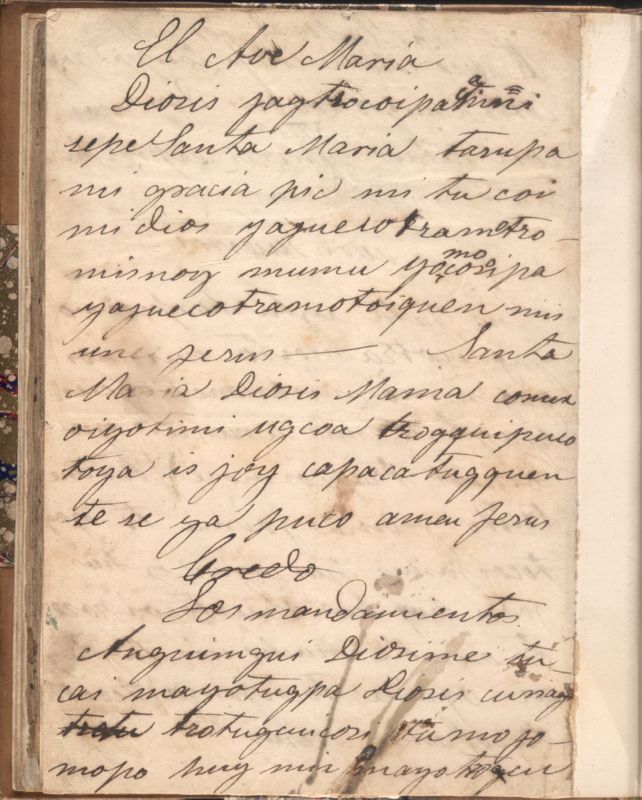 El Ave Maria
Diosis jagtrocoipa
sepe Santa Maria tarupa
mi gracia pic mi tu coi
mi dios yaguecotramotro-
misnoy mumu yomocosipa
yaguecotramotoiquen mis
une jesus — Santa
Maria Diosis Mama comex
oiyotimi ugcoa trogquipuco
toya is joy capacatugquen
te se ya puco amen Jesus
Credo
Los mandamientos
Anguimgui Diosime tu-
cai mayotugpa Diosis
trotugcucosi tumo jo-
mopo huy mis